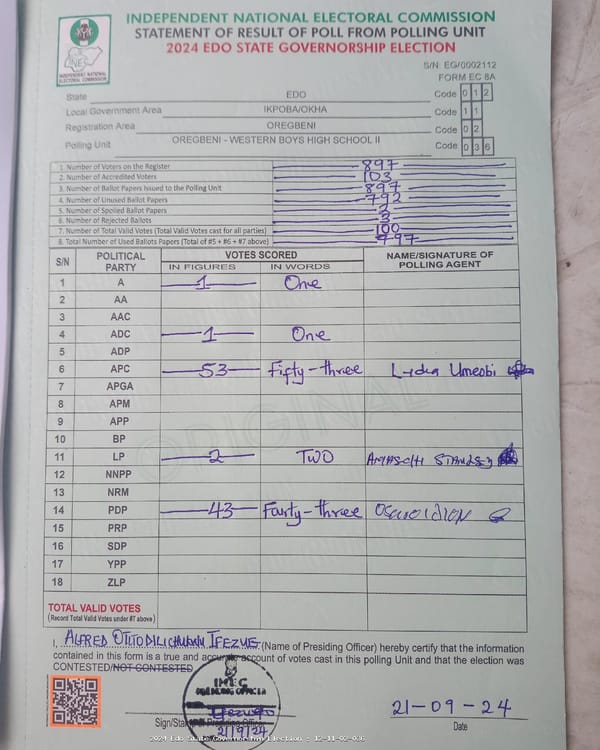 INDEPENDENT NATIONAL ELECTORAL COMMISSION
STATEMENT OF RESULT OF POLL FROM POLLING UNIT
2024 EDO STATE GOVERNORSHIP ELECTION
INEC
INDEPENDENT NATIONAL ELECTORAL COMMISSION
S/N: EG/0002112
FORM EC 8A
State EDO Code 0 1 2
Local Government Area IKPOBA/OKHA Code 1 1
Registration Area OREGBENI Code 0 2
Polling Unit OREGBENI - WESTERN BOYS HIGH SCHOOL II Code 0 3 6
1. Number of Voters on the Register 897
2. Number of Accredited Voters 103
3. Number of Ballot Papers Issued to the Polling Unit 897
4. Number of Unused Ballot Papers 792
5. Number of Spoiled Ballot Papers 2
6. Number of Rejected Ballots 3
7. Number of Total Valid Votes (Total Valid Votes cast for all parties) 100
8. Total Number of Used Ballots Papers (Total of #5 + #6 + #7 above)
S/N POLITICAL PARTY VOTES SCORED NAME/SIGNATURE OF POLLING AGENT
IN FIGURES IN WORDS
1 A 1 One
2 AA
3 AAC
4 ADC 1 One
5 ADP
6 APC 53 Fifty-three Lydia Umeobi
7 APGA
8 APM
9 APP
10 BP
11 LP 2 TWO
12 NNPP
13 NRM
14 PDP 43 Fourty-three
15 PRP
16 SDP
17 YPP
18 ZLP
ORIGINAL
TOTAL VALID VOTES
(Record Total Valid Votes under #7 above)
I, ALFRED OTITODILICHUKWU IFEZUE (Name of Presiding Officer) hereby certify that the information
contained in this form is a true and accurate account of votes cast in this polling Unit and that the election was
CONTESTED/NOT CONTESTED
INEC
PRESIDING OFFICER
21/9/24
21-09-24
Sign/Stamp of Presiding Officer
Date
2024 Edo State Governorship Election - 12-11-02-036